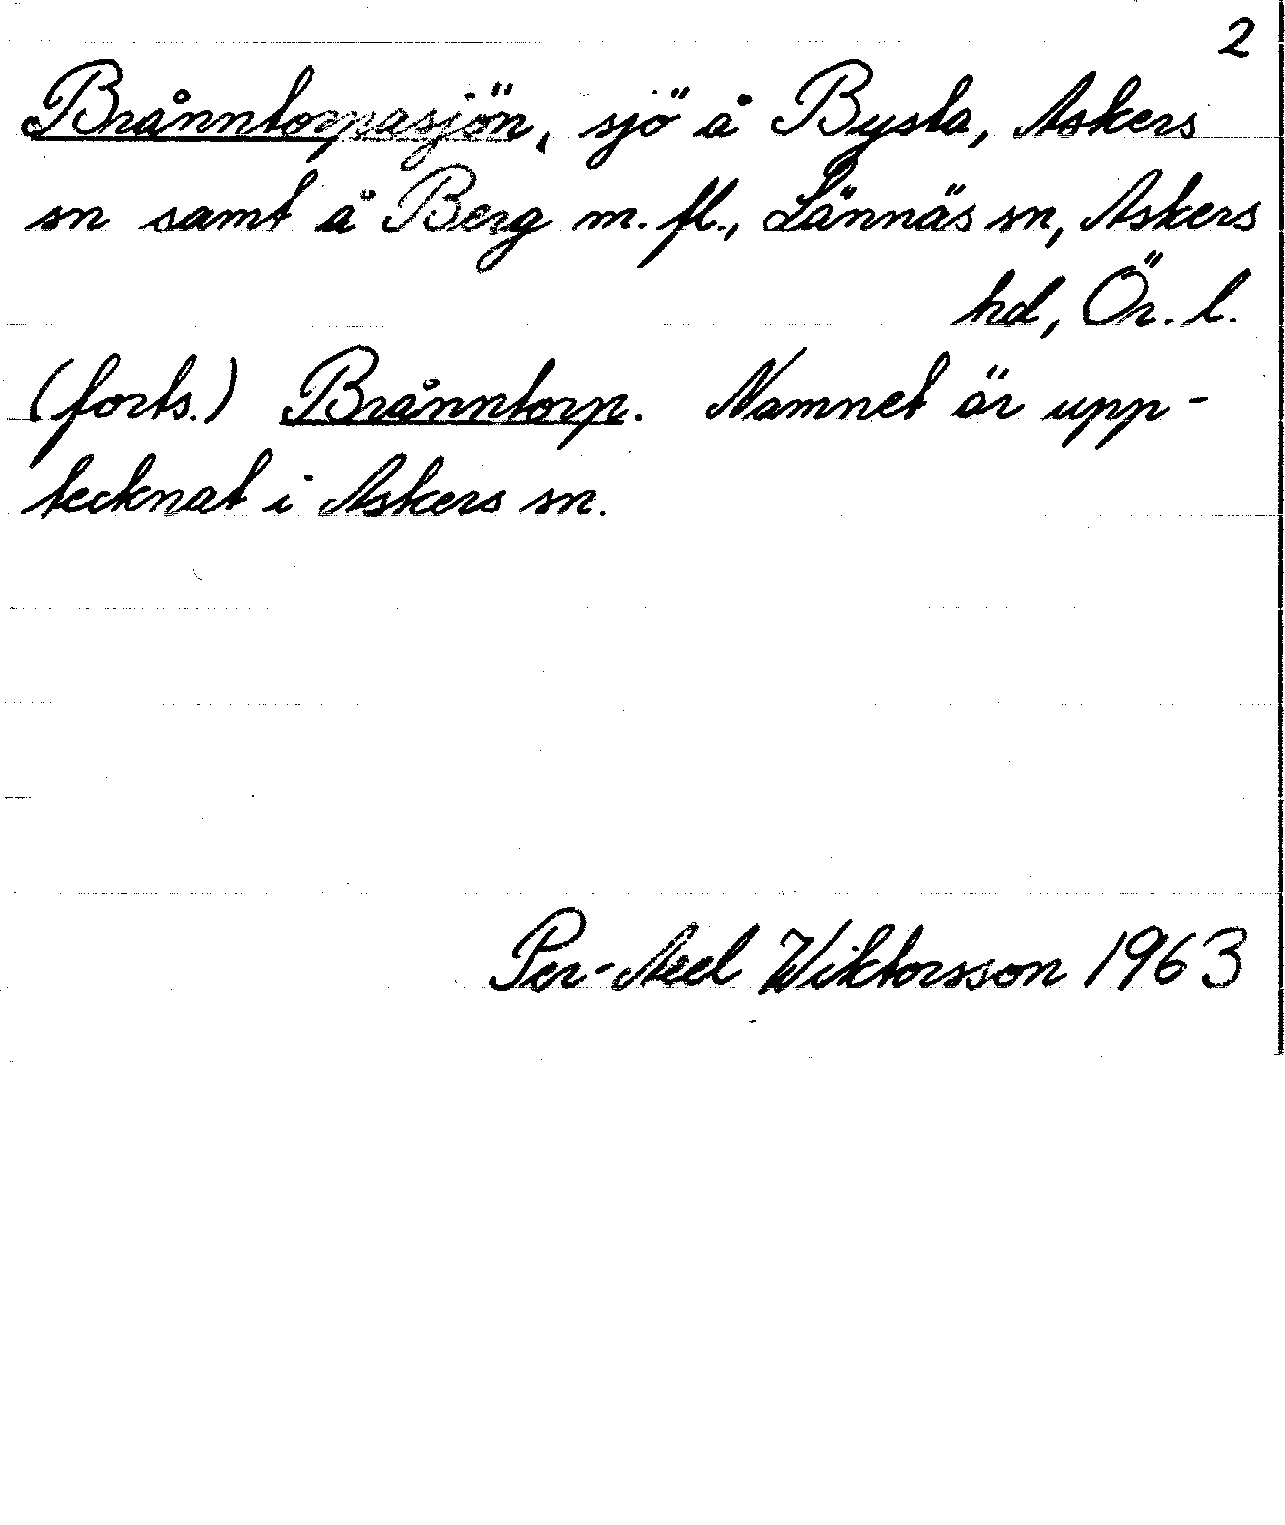 2
Brånntorpasjön, sjö å Bysta, Askers
sn samt å Berg m. fl., Lännäs sn, Askers
hd, Ör. l.
(forts.) Brånntorp. Namnet är upp-
tecknat i Askers sn.
Per-Axel Wiktorsson 1963